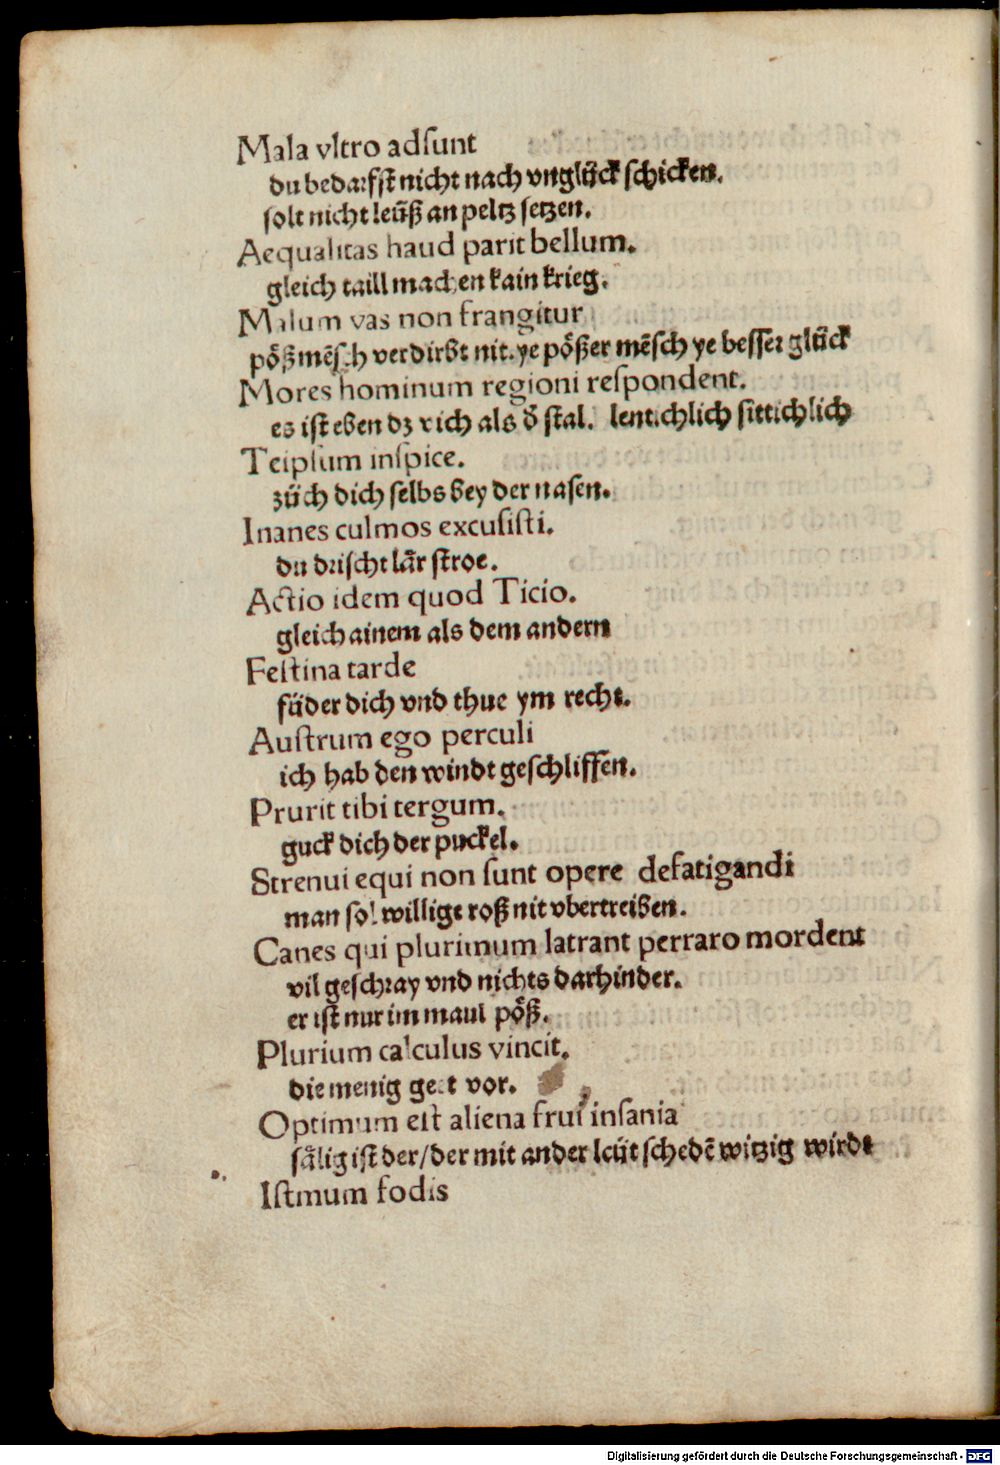 Mala vltro adſunt
du bedarfſt nicht nach vnglück ſchicken.
ſolt nicht leüß an peltz ſetzen.
Aequalitas haud parit bellum.
gleich taill machen kain krieg.
Malum vas non frangitur
pößmēſch verdirbt nit. ye pößer mēſch ye beſſer glück
Mores hominum regioni reſpondent.
es iſt eben dz vich als d̕ ſtal. lentichlich ſittichlich
Teipſum inſpice.
züch dich ſelbs bey der naſen.
Inanes culmos excuſiſti.
du driſcht lär ſtroe.
Actio idem quod Ticio.
gleich ainem als dem andern
Feſtina tarde
füder dich vnd thue ym recht.
Auſtrum ego perculi
ich hab den windt geſchliffen.
Prurit tibi tergum.
guck dich der puckel.
Strenui equi non ſunt opere defatigandi
man ſol willige roß nit vbertreiben.
Canes qui plurimum latrant perraro mordent
vil geſchray vnd nichts darhinder.
er iſt nur im maul pöß.
Plurium calculus vincit.
die menig geet vor.
Optimum eſt aliena frui inſania
ſälig iſt der/der mit ander leüt ſchedē witzig wirdt
Iſtmum fodis
Digitalisierung gefördert durch die Deutsche Forschungsgemeinschaft - DFG